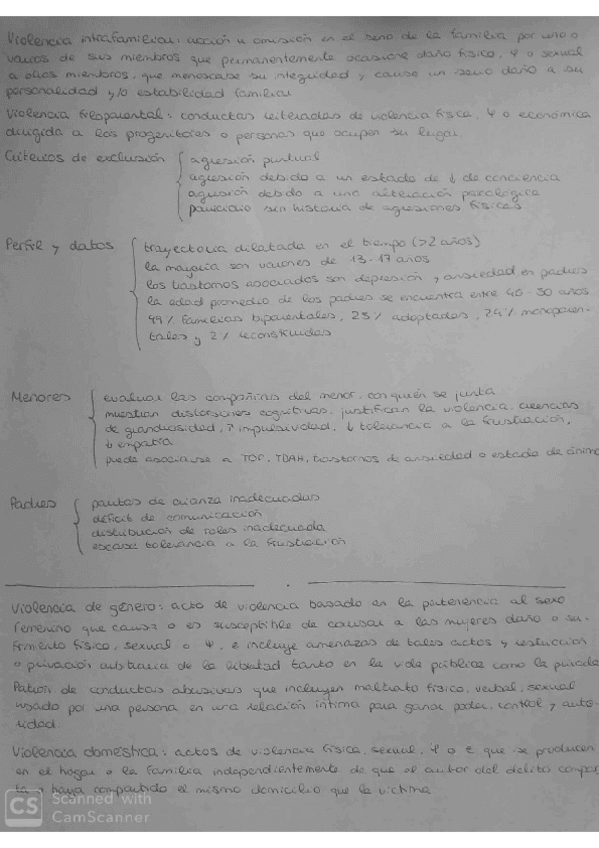 Violencia intrafamiliar: acción u omisión en el seno de la familia por uno o
varios de sus miembros que permanentemente ocasione daño físico, Ψ o sexual
a otros miembros, que menoscabe su integridad y cause un serio daño a su
personalidad y/o estabilidad familiar
Violencia filioparental: conductas reiteradas de violencia física, Ψ o económica
dirigida a los progenitores o personas que ocupen su lugar.
Criterios de exclusión
agresión puntual
agresión debido a un estado de ↓ de conciencia
agresión debido a una alteración psicológica
parricidio sin historia de agresiones físicas
Perfil y datos
trayectoria dilatada en el tiempo (>2 años)
la mayoría son varones de 13-17 años
los trastornos asociados son depresión y ansiedad en padres
la edad promedio de los padres se encuentra entre 40-50 años
49% familias biparentales, 25% adoptados, 24% monoparen-
tales y 2% reconstruidas
Menores
evaluar las compañías del menor, con quién se junta
muestran distorsiones cognitivas, justifican la violencia, creencias
de grandiosidad, ↑ impulsividad, ↓ tolerancia a la frustración,
↓ empatía
puede asociarse a TOP, TDAH, trastornos de ansiedad o estado de ánimo
Padres
pautas de crianza inadecuadas
déficit de comunicación
distribución de roles inadecuada
escasa tolerancia a la frustración
Violencia de género: acto de violencia basado en la pertenencia al sexo
femenino que causa o es susceptible de causar a las mujeres daño o su-
frimiento físico, sexual o Ψ, e incluye amenazas de tales actos y restricción
o privación arbitraria de la libertad tanto en la vida pública como la privada
Patrón de conductas abusivas que incluyen maltrato físico, verbal, sexual
usado por una persona en una relación íntima para ganar poder, control y auto-
ridad.
Violencia doméstica: actos de violencia física, sexual, Ψ o E que se producen
en el hogar o la familia independientemente de que el autor del delito compar
ta o haya compartido el mismo domicilio que la víctima
CS Scanned with
CamScanner